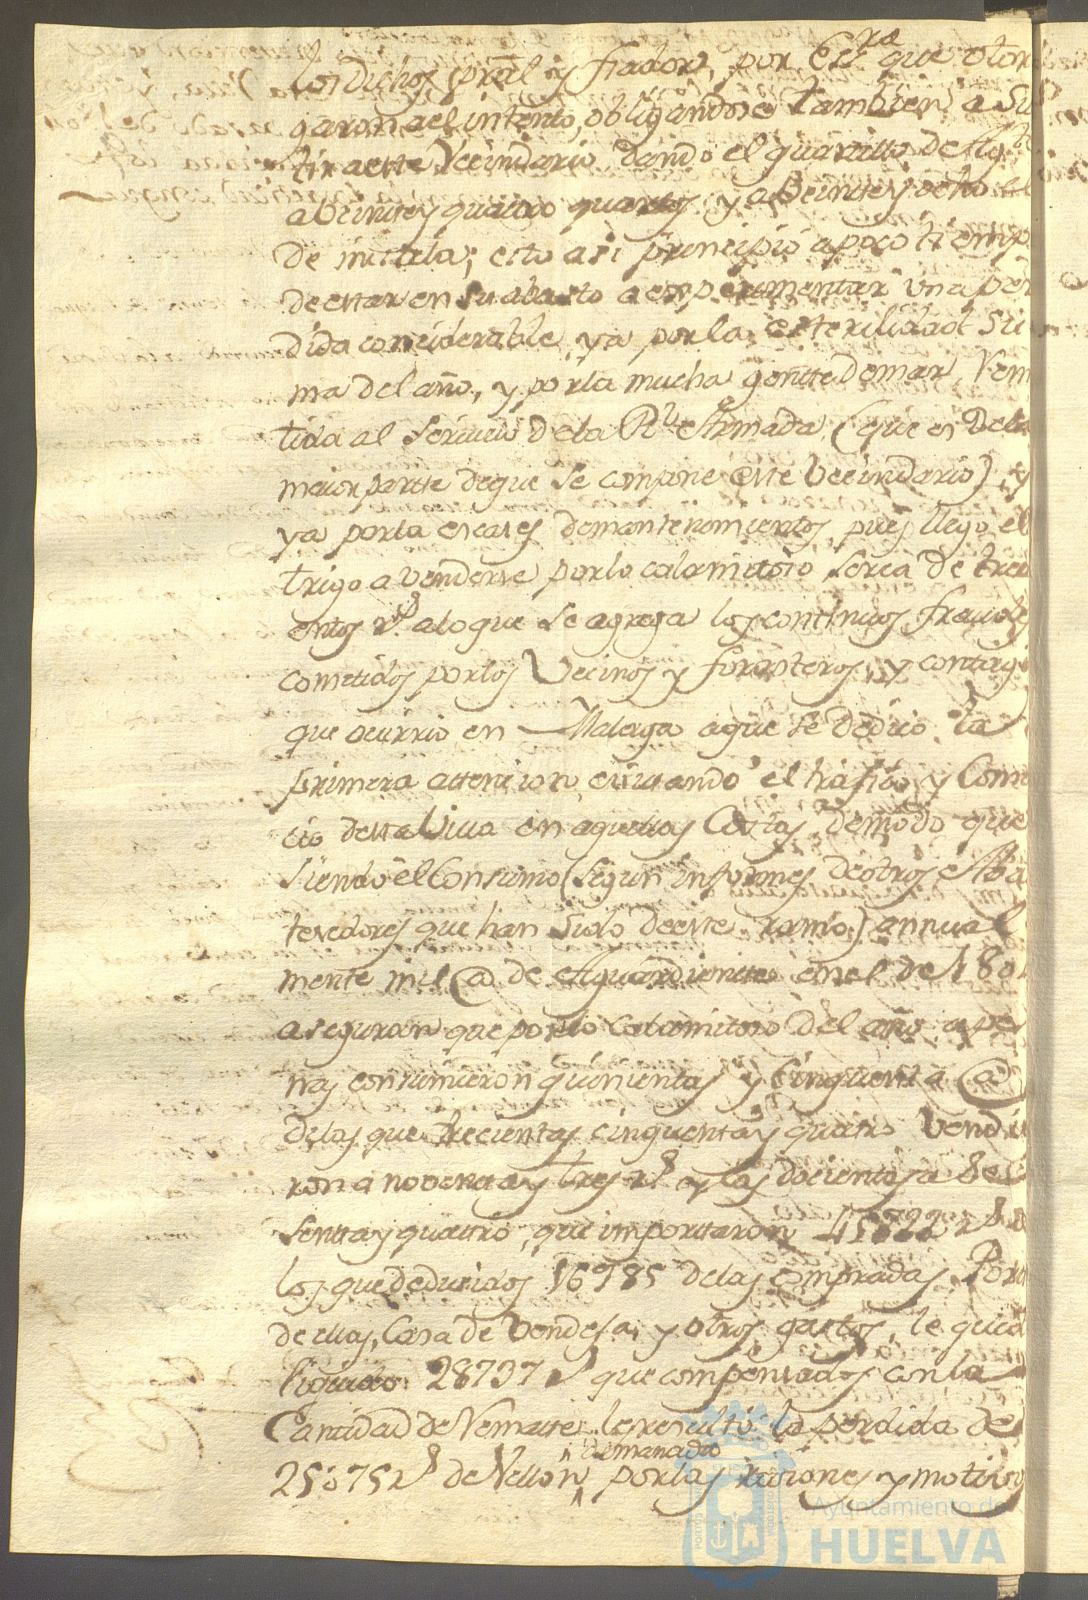 los dichos pral y fiador, por Essra que otor
garon a el intento, obligandose tambien a Su
tir a este Vecindario, dando el quartillo de
a veinte y quatro quartos y a veinte y ocho el
de mistela; esto asi principió a poco tiemp
de estar en su abasto a experimentar una per
dida considerable, ya por la esterilidad su
ma del año, y por la mucha gente de mar, Remi
tida al servicio de la Rl Armada (que es de la
maior partte de que se compone este Vecindario), y
ya por la escases de mantenimientos, pues llegó el
trigo a venderse por lo calamitoso serca de trec
entos rs a lo que se agrega los continuos fraudes
cometidos por los Vecinos y forasteros, y contagi
que ocurrio en Malaga a que se dedicó la
primera attencion, evitando el trafico y Come
cio de esta Villa en aquellas Costas de modo que
siendo el Consumo (segun informes de otros Abas
tecedores que han sido de este ramo) annual
mente mil @ de Aguardiente en el de 180
aseguran que por lo calamitoso del año ape
nas consumieron quinientas y cinquenta @
de las que trecientas cinquenta y quatro vendie
ron a noventa y tres rs y las docientas a se
senta y quatro, que importaron 45722 rs de
los que deducidos 16985 de las compradas, Porte
de ellas, Casa de Vendeja, y otros gastos, le quedó
liquido 28737 rs que compensados con la
Cantidad de Remate le resultó la perdida de
25075 rs de Vellon, dimanado por las rasones y motivos
Ayuntamiento de
HUELVA